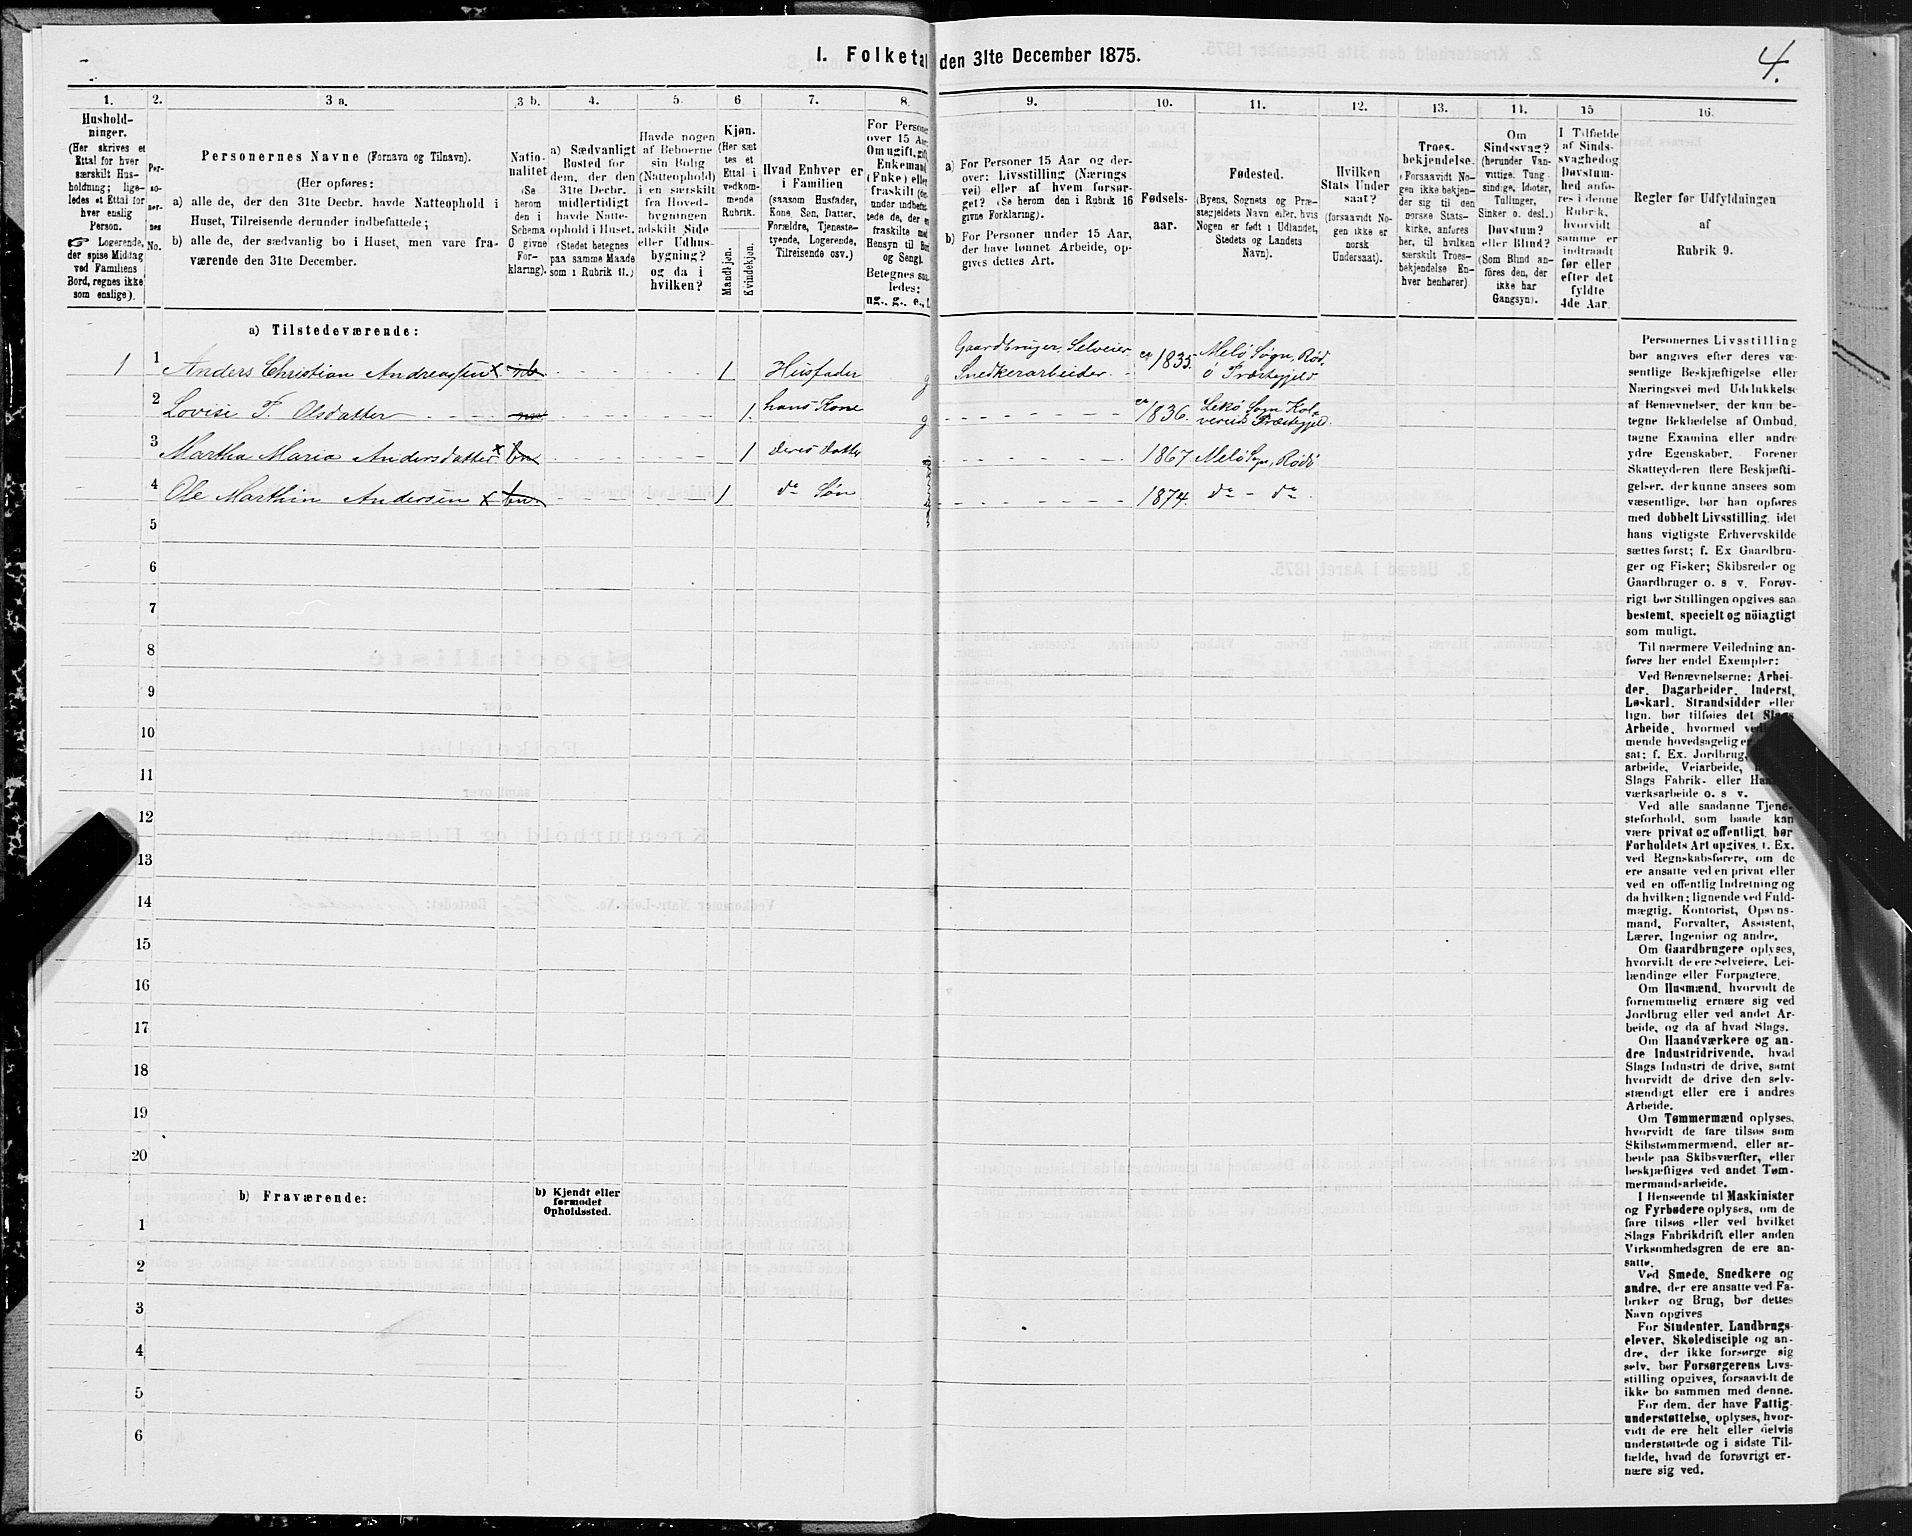 1. Folketal den 31te December 1875.
4.
1.
2.
3 a.
3 b.
4.
5.
6
7.
8.
9.
10.
11.
12.
13.
14.
15
16.
Hushold-
ninger.
(Her skrives et
Ettal for hver
særskilt Hus-
holdning; lige-
ledes et Ettal for
hver enslig
Person.
Logerende,
der spise Middag
ved Familiens
Bord, regnes ikke
som enslige).
Per-
so-
ner-
nes
No.
Personernes Navne (Fornavn og Tilnavn).
(Her opføres:
a) alle de, der den 31te Decbr. havde Natteophold i
Huset, Tilreisende derunder indbefattede;
b) alle de, der sædvanlig bo i Huset, men vare fra-
værende den 31te December.
Natio-
nalitet
(Se
herom
den i
Schema
O givne
For-
klaring).
a) Sædvanligt
Bosted for
dem, der den
31te Decbr.
midlertidigt
havde Natte-
ophold i Huset.
(Stedet betegnes
paa samme Maade
som i Rubrik 11.)
Havde nogen
af Beboerne
sin Bolig
(Natteophold)
i en særskilt
fra Hoved-
bygningen
adskilt Side
eller Udhus-
bygning?
og da i
hvilken?
Kjøn.
(Her sæt
tes et
Ettal i
vedkom-
mende
Rubrik.
Mandkjøn.
Kvindekjøn.
Hvad Enhver er
i Familien
(saasom Husfader,
Kone, Søn, Datter,
Forældre, Tjeneste-
tyende, Logerende,
Tilreisende osv.)
For Persone
over 15 Aar
Om ugift, gift,
Enkemand
(Enke) eller
fraskilt
under indbefat
tede de, der e
fraskilte med
Hensyn til Bo
og Seng).
Betegnes saa
ledes:
ug., g., e.,
a) For Personer 15 Aar og der-
over: Livsstilling (Nærings
vei) eller af hvem forsør-
get? (Se herom den i Rubrik 16
givne Forklaring).
b) For Personer under 15 Aar,
der have lønnet Arbeide, op-
gives dettes Art.
Fødsels-
aar.
Fødested.
(Byens, Sognets og Præ-
stegjeldets Navn eller, hvis
Nogen er født i Udlandet,
Stedets og Landets
Navn).
Hvilken
Stats Under
saat?
(forsaavidt No-
gen ikke er
norsk
Undersaat).
Troes-
bekjendelse.
(Forsaavidt No-
gen ikke bekjen-
der sig til den
norske Stats-
kirke, anføres
her, til hvilken
særskilt Troes-
bekjendelse En-
hver henhører)
Om
Sindssvag?
(herunder Van-
vittige, Tung
sindige, Idioter,
Tullinger,
Sinker o. desl.)
Døvstum?
eller Blind?
(Som Blind an-
føres den, der
ikke har
Gangsyn).
I Tilfælde
af Sinds-
svaghedog
Døvstum-
hed anfø-
res i denne
Rubrik,
hvorvidt
samme er
indtraadt
før eller
efter det
fyldte
4de Aar.
Regler for Udfyldningen
af
Rubrik 9.
a) Tilstedeværende:
1 1 Anders Christian Andreassen x 1 Husfader g Gaardbruger, Selveier, Snedkerarbeider ca 1835 Melø Sogn, Rød.
ø Præstegjeld.
2 Lovise F. Olsdatter 1. hans Kone g ca 1836. Lekø Sogn Kol-
vereid Præstegjeld.
3 Martha Maria Andersdatter x 1 deres Datter 1867 Melø Sogn, Rødø
4 Ole Marthin Andersen x 1 do Søn 1874. do - do
5
6
7
8
9
10
11
12
13
14
15
16
17
18
19
20
b) Fraværende:
b) Kjendt eller
formodet
Opholdssted.
1
2
3
4
5
6
Personernes Livsstilling
bør angives efter deres væ-
sentlige Beskjæftigelse eller
Næringsvei med Udelukkelse
af Benævnelser, der kun be-
tegne Beklædelse af Ombud,
tagne Examina eller andre
ydre Egenskaber. Forener
Skatteyderen flere Beskjæfti-
gelser, der kunne ansees som
væsentlige, bør han opføres
med dobbelt Livsstilling, idet
hans vigtigste Erhvervskilde
sættes først; f. Ex Gaardbru-
ger og Fisker; Skibsreder og
Gaardbruger o. s v. Forøv-
rigt bør Stillingen opgives saa
bestemt, specielt og nöiagtigt
som muligt.
Til nærmere Veiledning an-
føres her endel Exempler:
Ved Benævnelserne: Arbei-
der, Dagarbeider, Inderst,
Løskarl, Strandsidder eller
lign. bør tilføies det Slags
Arbeide, hvormed
mende hovedsagelig er
sat; f. Ex. Jordbrug,
arbeide, Veiarbeide,
Slags Fabrik- eller
værksarbeide o. s v.
Ved alle saadanne Tjene-
steforhold, som baade kan
være privat og offentligt, bør
Forholdets Art opgives, f. Ex.
ved Regnskabsførere, om de
ere ansatte ved en privat eller
ved en offentlig Indretning og
da hvilken; lignende ved Fuld-
mægtig, Kontorist, Opsyns-
mand, Forvalter, Assistent,
Lærer, Ingeniør og andre.
Om Gaardbrugere oplyses,
hvorvidt de ere Selveiere, Lei-
lændinge eller Forpagtere.
Om Husmænd, hvorvidt de
fornemmelig ernære sig ved
Jordbrug eller ved andet Ar-
beide, og da af hvad Slags.
Om Haandværkere og an-
dre Industridrivende, hvad
Slags Industri de drive, samt
hvorvidt de drive den selv-
stændigt eller ere i andres
Arbeide.
Om Tømmermænd oplyses,
hvorvidt de fare tilsøs som
Skibstømmermænd, eller ar-
beide paa Skibsværfter, eller
beskjæftiges ved andet Tøm-
mermandsarbeide.
I Henseende til Maskinister
og Fyrbødere oplyses, om de
fare tilsøs eller ved hvilket
Slags Fabrikdrift eller anden
Virksomhedsgren de ere an-
satte.
Ved Smede, Snedkere og
andre, der ere ansatte ved Fa-
briker og Brug, bør dettes
Navn opgives
For Studenter, Landbrugs-
elever, Skoledisciple og an-
dre, der ikke forsørge sig
selv, bør Forsørgerens Livs-
stilling opgives, forsaavidt de
ikke bo sammen med denne.
For dem, der have Fattig-
understøttelse, oplyses, hvor-
vidt de ere helt eller delvis
understøttede og i sidste Til-
fælde, hvad de forøvrigt er-
nære sig ved.